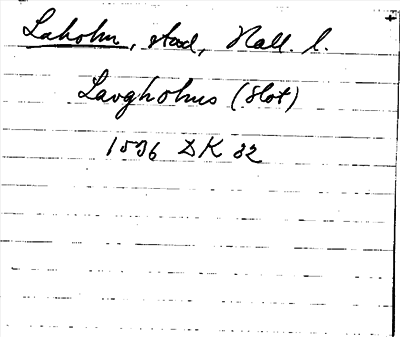 Laholm, stad, Hall. l.
Lavgholms (Slot)
1536 DK 32